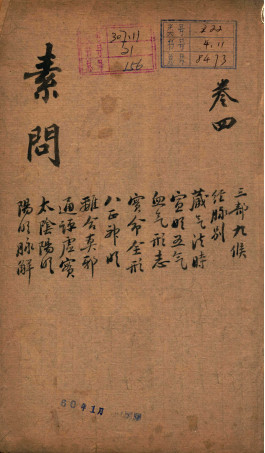 卷四
三部九候
經脉別
藏气法時
宣明五气
血气形志
寶命全形
八正神明
離合真邪
通評虛實
太陰陽明
陽明脉解
素問
307.11
51
156
222
4.11
8473
60年1月